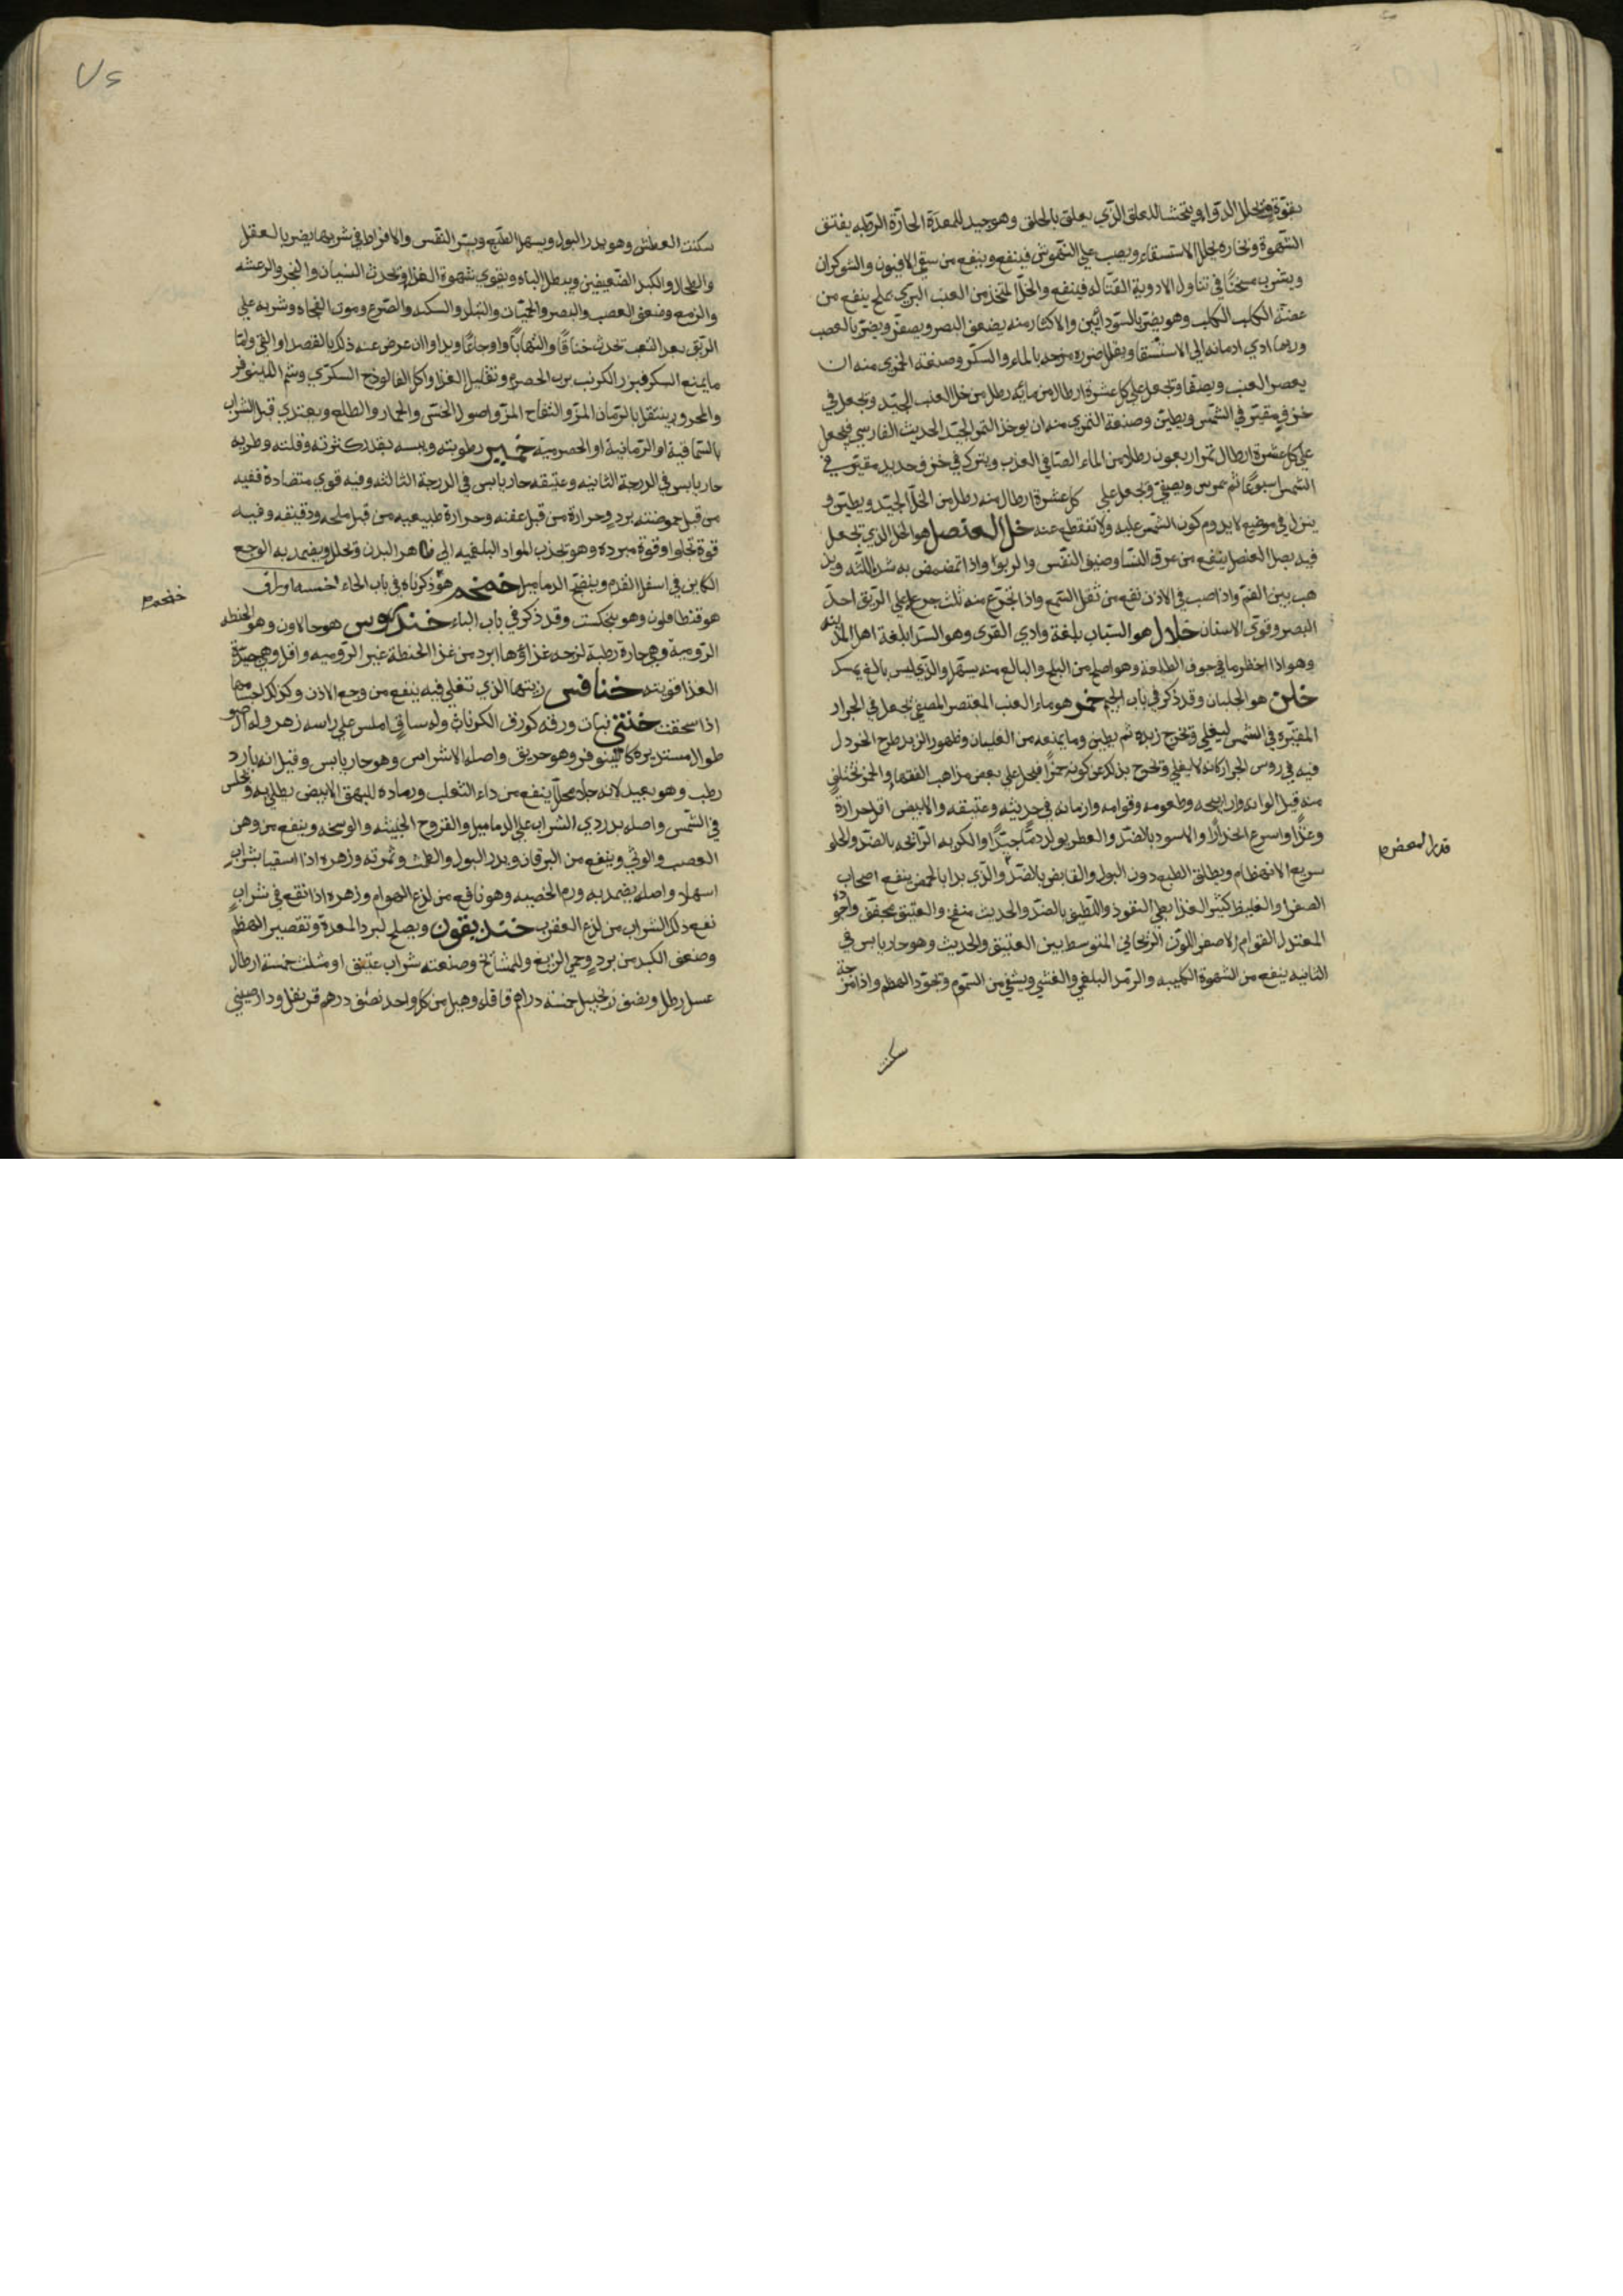 بقوة ويحلل الدواء ويتحشا للعلق الذي يعلق بالحلق وهو جيد للمعدة الحارة الرطبه يفتق
الشهوة وبخاره يحلل الاستسقاء ويصب علي النهوش فينفع وينفع من سقي الافيون والشوكران
ويشرب مسخنًا في تناول الادوية القتاله فينفع والخل المتخذ من العنب البري بملح ينفع من
عضة الكلب الكلب وهو يضر بالسودائيين والاكثار منه يضعف البصر ويصفر ويضر بالعصب
وربما ادي ادمانه الي الاستسقا ويقلل ضرره مزجه بالماء والسكر وصنعة الخمري منه ان
يعصر العنب ويصفا ويجعل علي كل عشرة ارطال من مائه رطل من خل العنب الجيد ويجعل في
خزف مقير في الشمس ويطين وصنعة التمري منه ان يوخذ التمر الجيد الحديث الفارسي فيجعل
علي كل عشرة ارطال تمر اربعون رطلا من الماء الصافي العذب ويترك في خزف جديد مقير في
الشمس اسبوعًا ثم يمرس ويصفي ويجعل علي كل عشرة ارطال منه رطل من الخل الجيد ويطين و
ينزل في موضع لا يدوم كون الشمس عليه ولا تنقطع عنه خل العنصل هو الخل الذي يجعل
فيه بصل العنصل ينفع من عرق النسا وضيق النفس والربو واذا تمضمض به شد اللثه ويذ
هب بنتن الفم واذا صب في الاذن نفع من ثقل السمع واذا تجرع منه ثلث جرع علي الريق احد
البصر وقوي الاسنان خلال هو السياب بلغة وادي القري وهو السدا بلغة اهل المدينه
وهو اذا اخظر ما في جوف الطلعة وهو اصلح من البلح والبالغ منه يسهل والذي ليس بالغ يمسك
خلن هو الجلبان وقد ذكر في باب الجيم خمر هو ماء العنب المعتصر المصفي يجعل في الجرار
المقيره في الشمس ليغلي ويخرج زبده ثم يطين وما يمنعه من الغليان وظهور الزبد طرح الخردل
فيه في روس الجرار كانه لا يغلي ويخرج بذلك عن كونه خمرًا فيحل علي بعض مذاهب الفقهاء والخمر تختلف
منه قبل الوانه وارايحه وطعومه وقوامه وازمانه في حديثه وعتيقه والابيض اقل حرارة
وغذاء واسرع انحدارًا والاسود بالضد والعطر يولد دمًا جيدًا والكريه الرائحه بالضد والحلو
سريع الانهظام ويطلق الطبع دون البول والقابض بالضد والذي بدا بالحمض ينفع اصحاب
الصفرا والغليظ كثير الغذا بطي النفوذ واللطيف بالضد والحديث منفخ والعتيق مجفف واجوده
المعتدل القوام الاصفر اللون الريحاني المتوسط بين العتيق والحديث وهو حار يابس في
الثانيه ينفع من الشهوة الكلبيه والرمد البلغمي والغشي ويشفي من السموم ويجود الهظم واذا مزجة
سكنت
٧٤
سكنت العطش وهو يدر البول ويسهل الطبع ويسر النفس والافراط في شربها يضر بالعقل
والطحال والكبد الضعيفين ويبطل الباه ويقوي شهوة الغذا ويحدث النسيان والبخر والرعشه
والزمع وضعف العصب والبصر والحميات والتبلد والسكته والصرع وموت الفجاه وشربه علي
الريق بعد التعب تحدث خناقًا والتهابًا واوجاعًا ويداوا ان عرض عنه ذلك بالفصد او القي واما
ما يمنع السكر فبزر الكرنب برب الحصرم وتقليل الغذا واكل الفالوذج السكري وشم اللينوفر
والمحرور ينتقل بالرمان المز والتفاح المز واصول الخس والجمار والطلع ويغتذي قبل الشراب
بالسماقية او الرمانية او الحصرمية خمير رطوبته ويبسه بقدر كثرته وقلته وطريه
حار يابس في الدرجة الثانيه وعتيقه حار يابس في الدرجة الثالثه وفيه قوي متضادة ففيه
من قبل حموضته برد وحرارة من قبل عفنه وحرارة طبيعيه من قبل ملحه ودقيقه وفيه
قوة تجلوا وقوة مبرده وهو يجذب المواد البلغميه الي ظاهر البدن ويحلل ويضمد به الوجع
الكاين في اسفل القدم وينضج الدماميل خمخم هو ذكرناه في باب الحاء خمسه اوراق
هو قنطافلون وهو بنجكست وقد ذكر في باب الباء خندروس هو حالاون وهو الحنطه
الروميه وهي حارة رطبة لزجه غذاؤها ابرد من غذا الحنطة غير الروميه واقل وهي جيدة
الغذا قويته خنافس زيتها الذي تغلي فيه ينفع من وجع الاذن وكذلك اجسامها
اذا سحقت خنثي نبات ورقه كورق الكراث وله ساق املس علي راسه زهر وله اصول
طوال مستديره كالينوفر وهو حريق واصله الاشراس وهو حار يابس وقيل انه بارد
رطب وهو بعيد لانه جلا محلل ينفع من داء الثعلب ورماده للبهق الابيض يطلي به ويجلس
في الشمس واصله بدردي الشراب علي الدماميل والقروح الخبيثه والوسخه وينفع من وهن
العصب والوثي وينفع من اليرقان ويدر البول والطمث وثمرته وزهره اذا اسقيا بشراب
اسهلا واصله يضمد به ورم الخصيه وهو نافع من لذع الهوام وزهره اذا انقع في شراب
نفع ذلك الشراب من لذع العقرب خنديقون ويصلح لبرد المعدة وتقصير الهظم
وضعف الكبد من برد وحمي الربع وللمشائخ وصنعته شراب عتيق او مثلث خمسة ارطال
عسل رطل ونصف زنجبيل خمسة دراهم قاقله وهيل من كل واحد نصف درهم قرنفل ودارصيني
خمخم